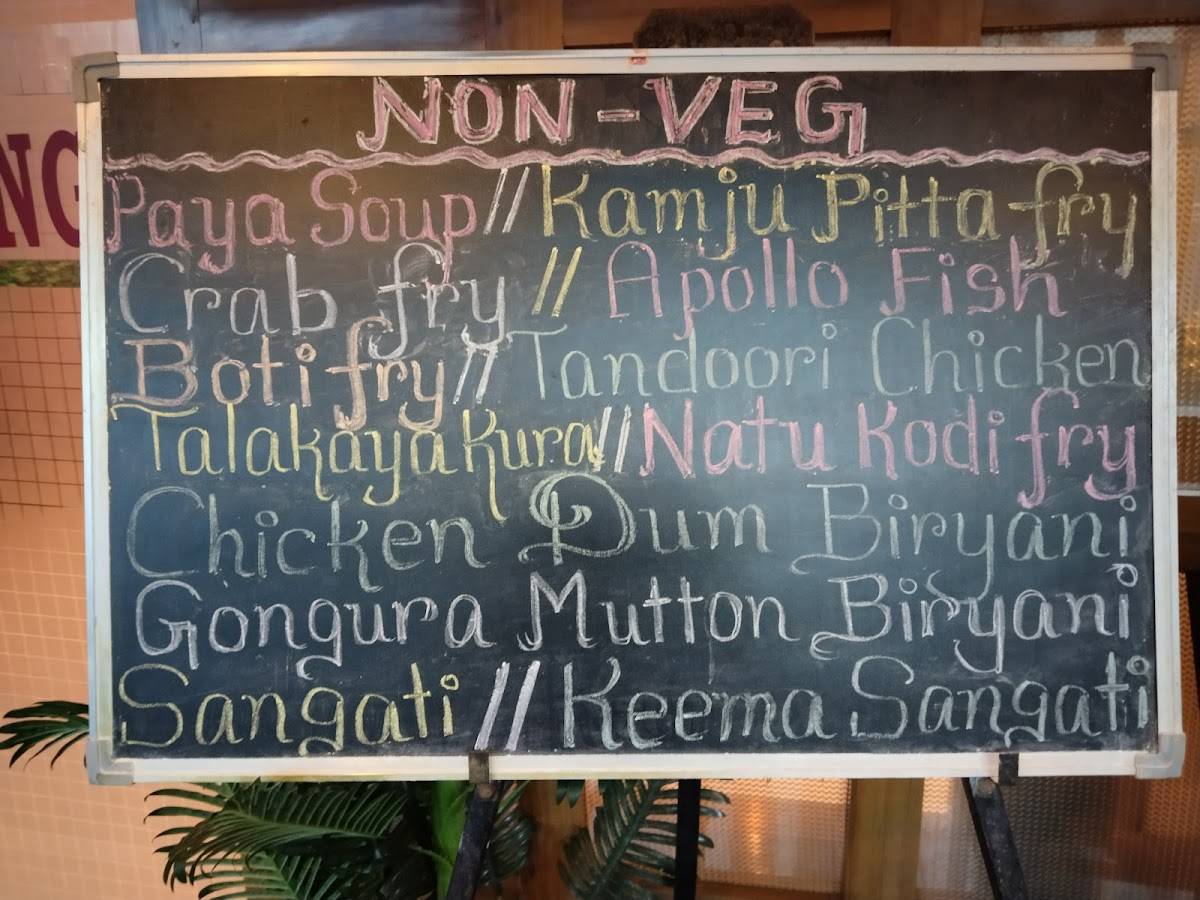 NG
NON-VEG
Paya Soup // Kamju Pitta fry
Crab fry // Apollo Fish
Boti fry // Tandoori Chicken
Talakaya Kura // Natu Kodi fry
Chicken Dum Biryani
Gongura Mutton Biryani
Sangati // Keema Sangati